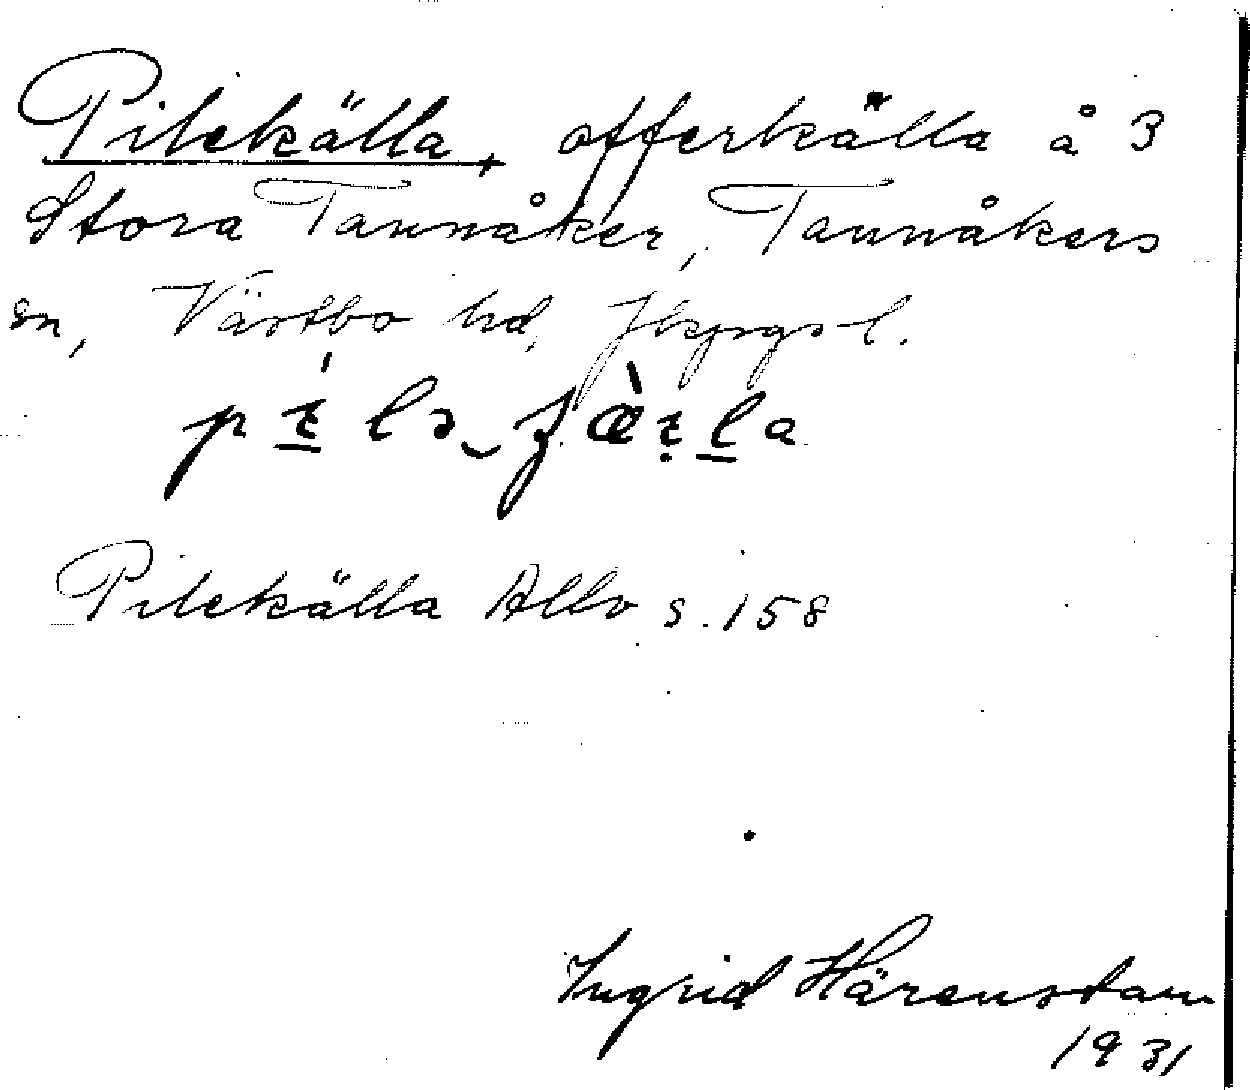 Pilekälla, offerkälla å 3
Stora Tannåker, Tannåkers
sn, Västbo hd, Jkpgs l.
Pilekälla Allv s. 158
Ingrid Härenstam
1931